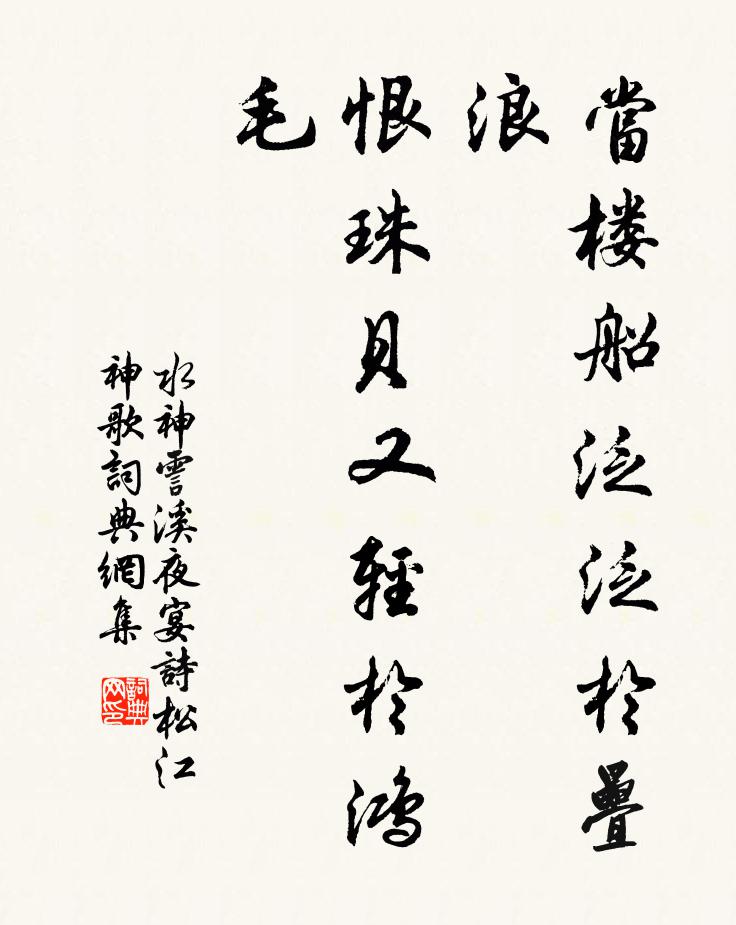 當楼船泛泛於疊
浪
恨珠貝又輕於鴻
毛
水神雲溪夜宴詩松江
神歌詞典網集
詞典
网印